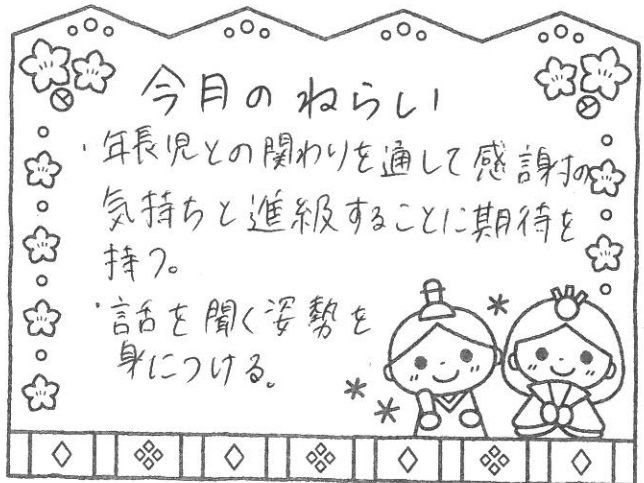 今月のねらい
・年長児との関わりを通して感謝の
気持ちと進級することに期待を
持つ。
・話を聞く姿勢を
身につける。